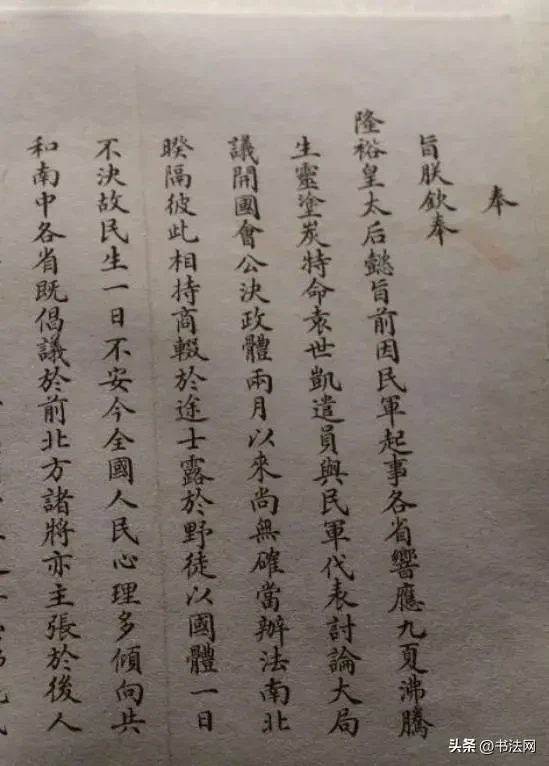 奉
旨朕欽奉
隆裕皇太后懿旨前因民軍起事各省響應九夏沸騰
生靈塗炭特命袁世凱遣員與民軍代表討論大局
議開國會公決政體兩月以來尚無確當辦法南北
睽隔彼此相持商輟於途士露於野徒以國體一日
不決故民生一日不安今全國人民心理多傾向共
和南中各省既倡議於前北方諸將亦主張於後人
头条 @书法网